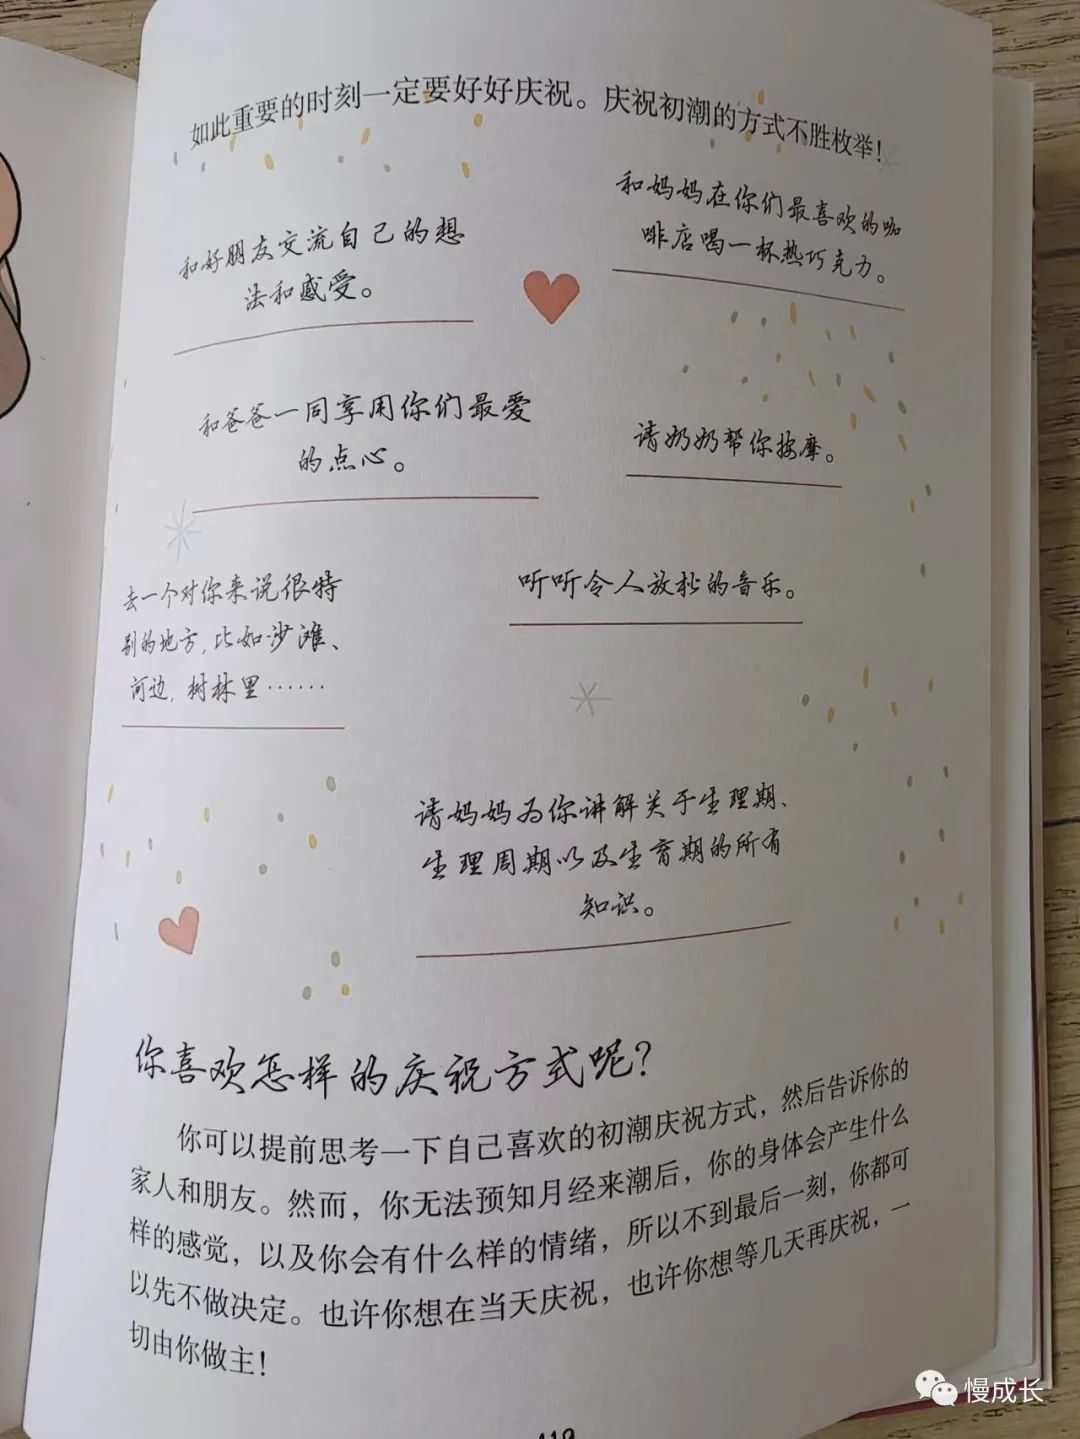 如此重要的时刻一定要好好庆祝。庆祝初潮的方式不胜枚举！
和好朋友交流自己的想
法和感受。
和妈妈在你们最喜欢的咖
啡店喝一杯热巧克力。
和爸爸一同享用你们最爱
的点心。
请奶奶帮你按摩。
去一个对你来说很特
别的地方，比如沙滩、
河边，树林里……
听听令人放松的音乐。
请妈妈为你讲解关于生理期、
生理周期以及生育期的所有
知识。
你喜欢怎样的庆祝方式呢？
你可以提前思考一下自己喜欢的初潮庆祝方式，然后告诉你的
家人和朋友。然而，你无法预知月经来潮后，你的身体会产生什么
样的感觉，以及你会有什么样的情绪，所以不到最后一刻，你都可
以先不做决定。也许你想在当天庆祝，也许你想等几天再庆祝，一
切由你做主！
慢成长